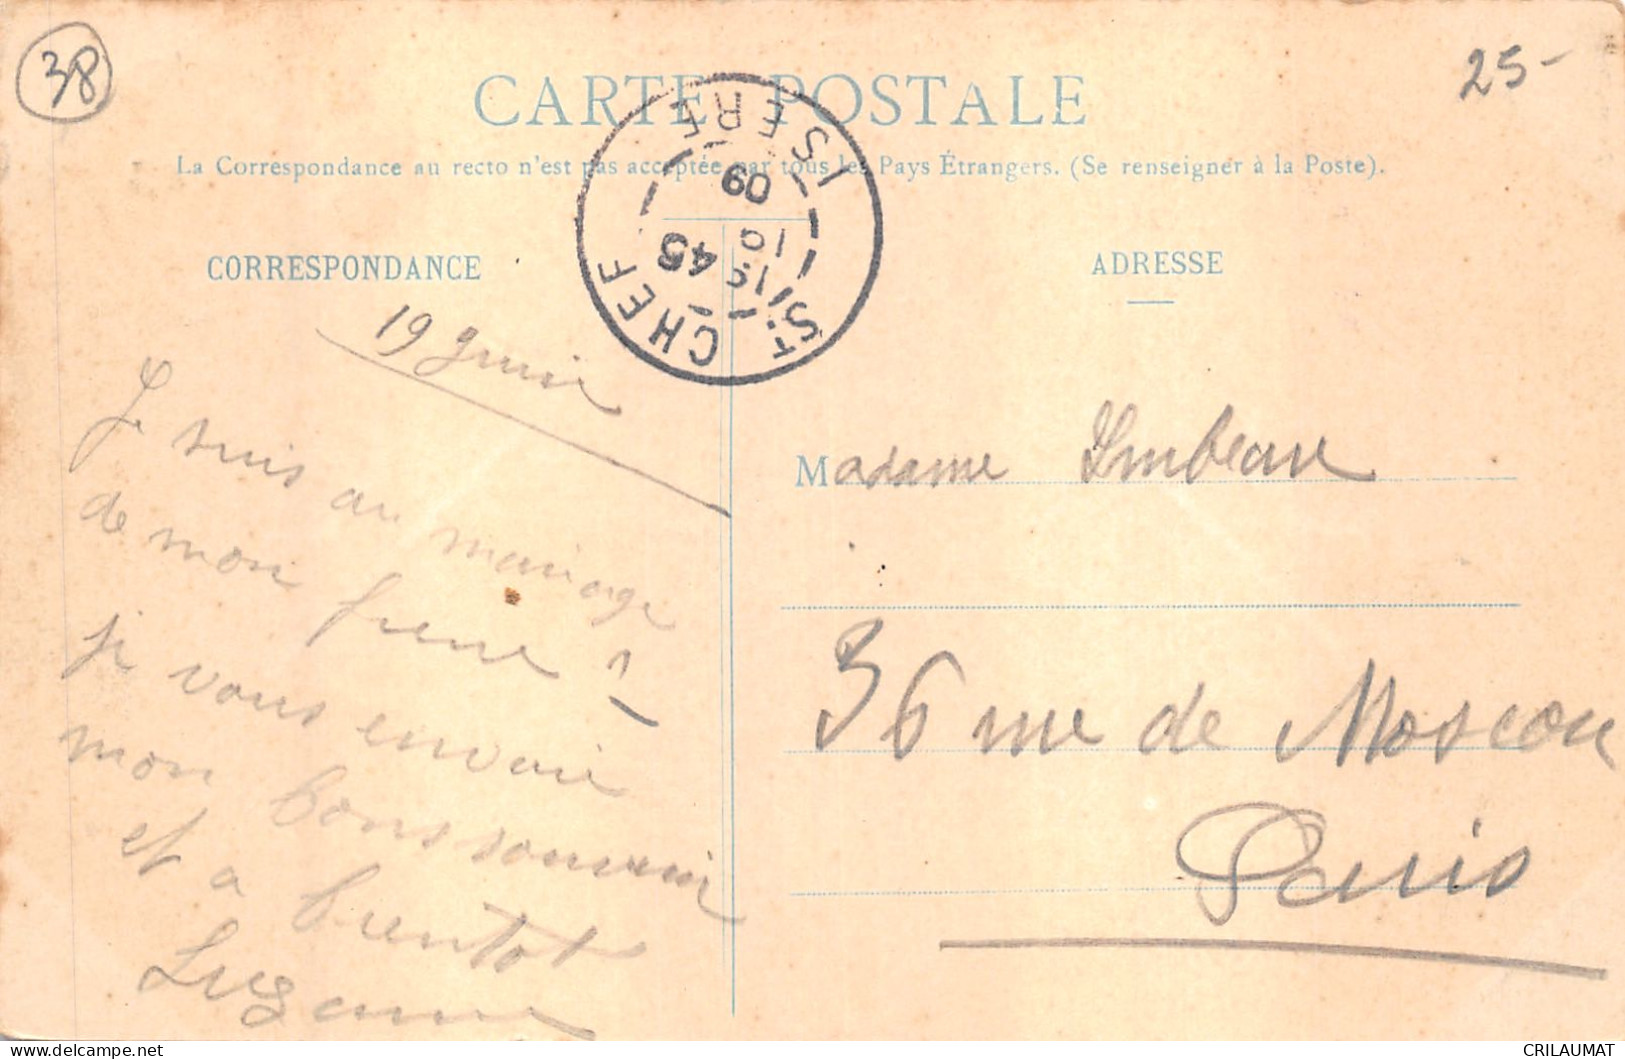 38
25-
CARTE POSTALE
La Correspondance au recto n'est pas acceptée par tous les Pays Étrangers. (Se renseigner à la Poste).
ST. CHEF ISERE
45
10
09
CORRESPONDANCE
ADRESSE
19
Je suis au mariage
de mon frere
je vous envoie
mon bons souvenir
et a bientot
Suzanne
Madame Imbeau
36 rue de Moscou
Paris
CRILAUMAT